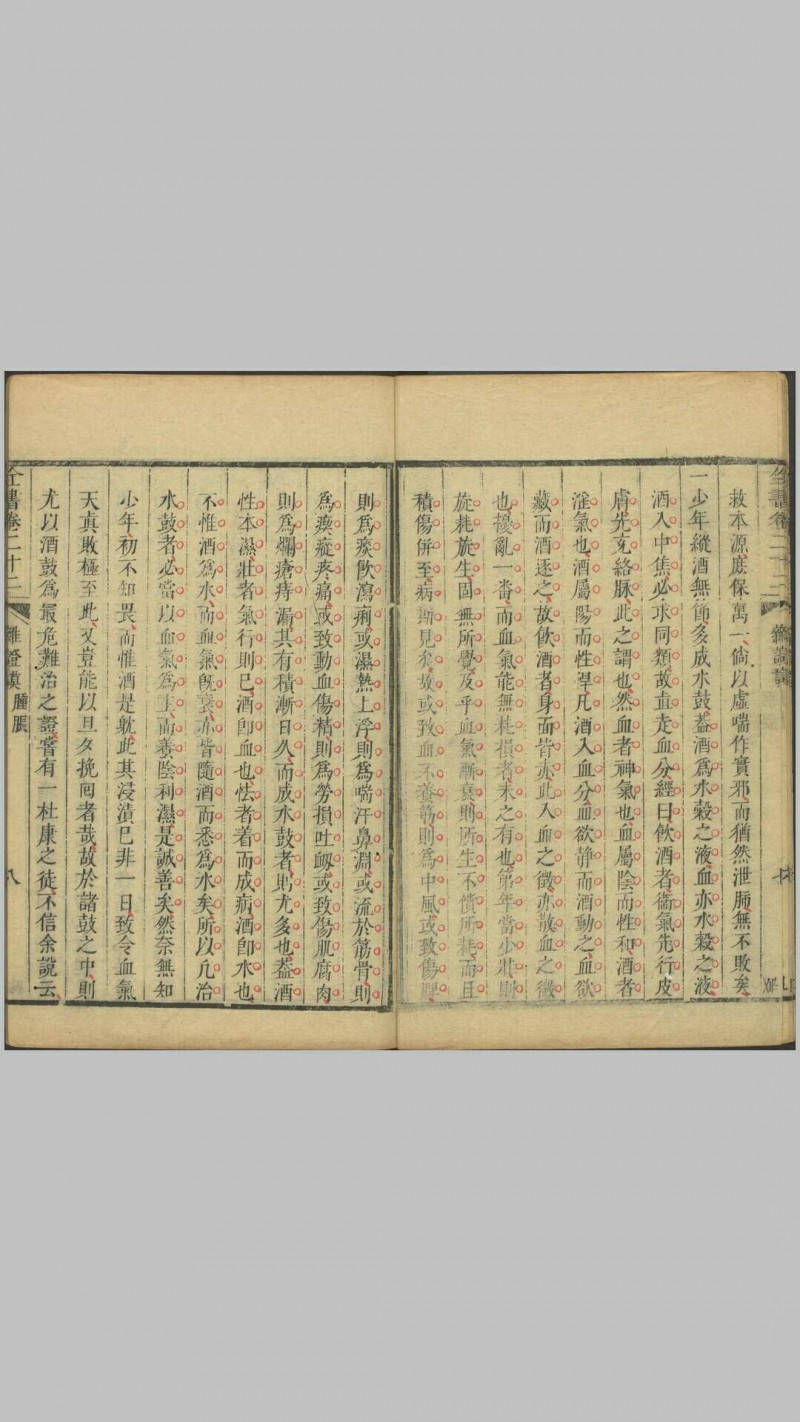 救本源庶保萬一倘以虛喘作實邪而猶然泄肺無不敗矣
一少年縱酒無節多成水鼓蓋酒為水穀之液血亦水穀之液
酒入中焦必求同類故直走血分經曰飲酒者衞氣先行皮
膚先充絡脉此之謂也然血者神氣也血屬陰而性和酒者
淫氣也酒屬陽而性悍凡酒入血分血欲静而酒動之血欲
藏而酒逐之故飲酒者身面皆赤此入血之徵亦散血之徵
也擾亂一番而血氣能無耗損者未之有也第年當少壯則
旋耗旋生固無所覺及乎血氣漸衰則所生不償所耗而且
積傷併至病斯見矣故或致血不養筋則為中風或致傷脾
則為痰飲瀉痢或濕熱上浮則為喘汗鼻淵或流於筋骨則
為瘈瘲疼痛或致動血傷精則為勞損吐衂或致傷肌腐肉
則為爛瘡痔漏其有積漸日久而成水鼓者則尤多也蓋酒
性本濕壯者氣行則已酒卽血也怯者着而成病酒卽水也
不惟酒為水而血氣旣衰亦皆隨酒而悉為水矣所以凡治
水鼓者必當以血氣為主而養陰利濕是誠善矣然奈無知
少年初不知畏而惟酒是躭此其浸漬已非一日致令血氣
天真敗極至此又豈能以旦夕挽囘者哉故於諸鼓之中則
尤以酒鼓為最危難治之證嘗有一杜康之徒不信余說云
全書卷二十二 雜證謨 腫脹 八